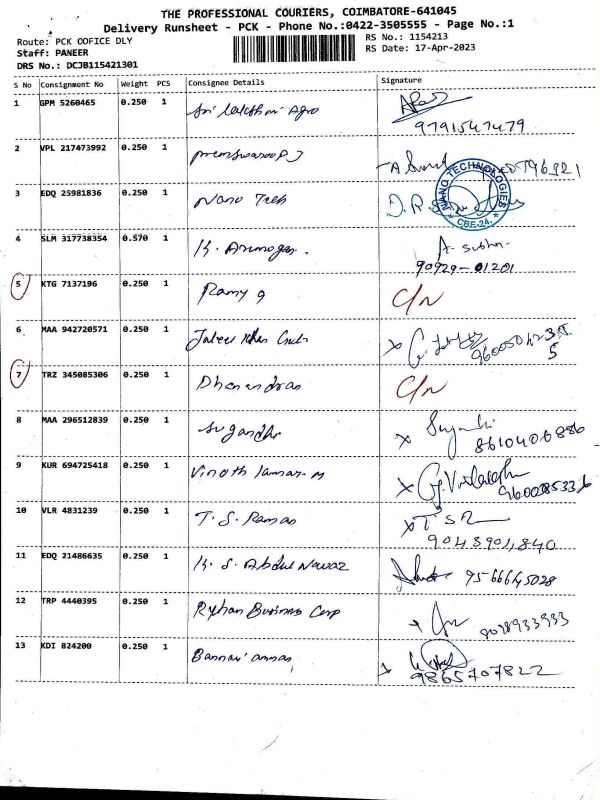 THE PROFESSIONAL COURIERS, COIMBATORE-641045
Delivery Runsheet - PCK - Phone No.:0422-3505555 - Page No.:1
Route: PCK OOFICE DLY
Staff: PANEER
DRS No.: DCJB115421301
RS No.: 1154213
RS Date: 17-Apr-2023
S No Consignment No Weight PCS Consignee Details Signature
1 GPM 5260465 0.250 1 Sri Lakshmi Agro
9791547479
2 VPL 217473992 0.250 1
3 EDQ 25981836 0.250 1 Nano Tech
NANO TECHNOLOGIES
* CBE-24. *
4 SLM 317738354 0.570 1 K. Arumogam.
90929-01201
5 KTG 7137196 0.250 1 Ramy g C/N
6 MAA 942720571 0.250 1
7 TRZ 345085306 0.250 1 Dhanendran C/N
8 MAA 296512839 0.250 1 Sugandhi
8610406886
9 KUR 694725418 0.250 1 Vinoth kumar. M
10 VLR 4831239 0.250 1 T. S. Raman X T S R
9043901,840
11 EDQ 21486635 0.250 1 K. S. Abdul Nawaz 9566645028
12 TRP 4440395 0.250 1 Ryhan Business Corp
13 KDI 824200 0.250 1 Bannari amman
9865707822